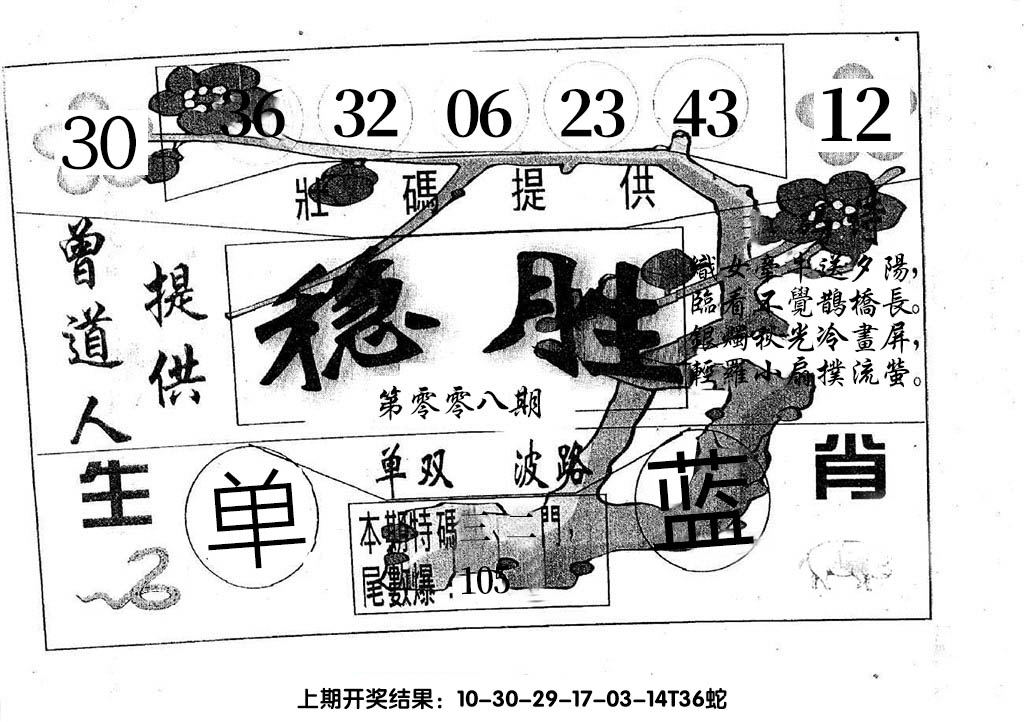 30 36 32 06 23 43 12
壯碼提供
特
曾道人
提供
稳胜
第零零八期
織女臺中送夕陽，
臨看不覺鵲橋長。
銀燭秋光冷畫屏，
輕羅小扇撲流螢。
单双 波路
生 肖
单 蓝
本期特碼三、二門，
尾數爆：105
上期开奖结果：10-30-29-17-03-14T36蛇